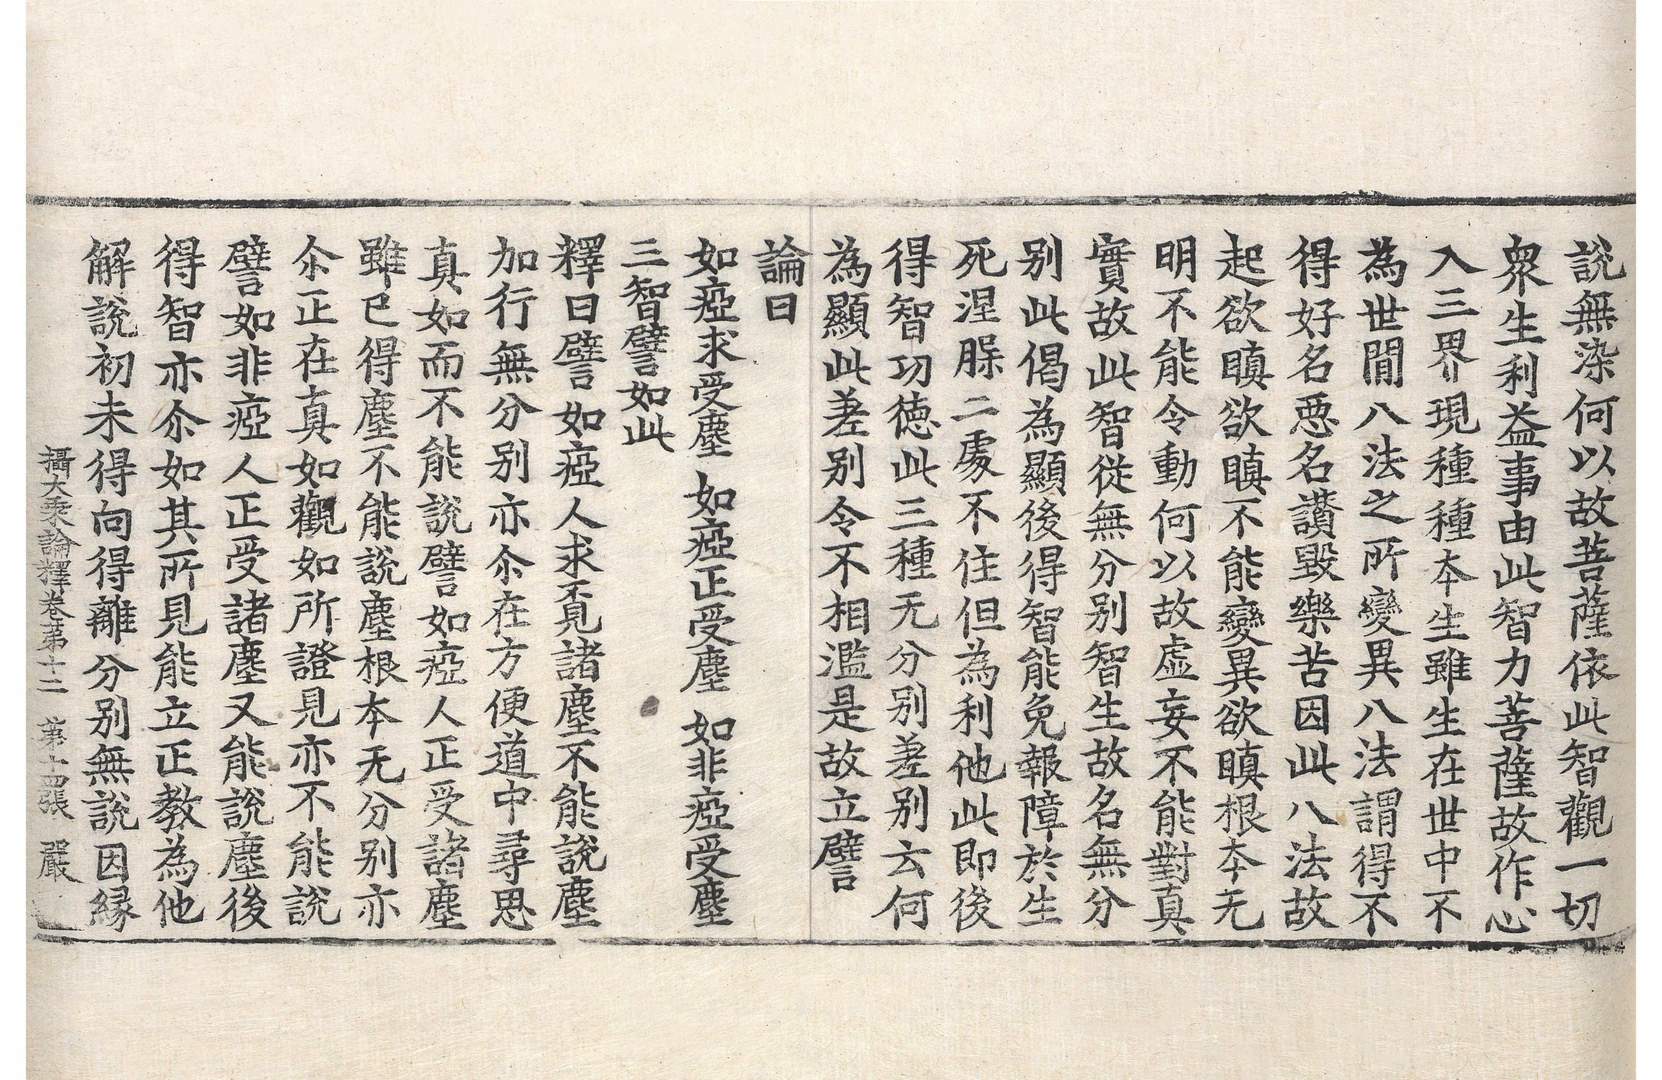 說無染何以故菩薩依此智觀一切
衆生利益事由此智力菩薩故作心
入三界現種種本生雖生在世中不
為世間八法之所變異八法謂得不
得好名惡名讃毀樂苦因此八法故
起欲瞋欲瞋不能變異欲瞋根本无
明不能令動何以故虛妄不能對真
實故此智從無分別智生故名無分
別此偈為顯後得智能免報障於生
死涅槃二處不住但為利他此即後
得智功德此三種无分別差別云何
為顯此差別令不相濫是故立譬
論曰
如瘂求受塵 如瘂正受塵 如非瘂受塵
三智譬如此
釋曰譬如瘂人求覓諸塵不能說塵
加行無分別亦尒在方便道中尋思
真如而不能說譬如瘂人正受諸塵
雖已得塵不能說塵根本无分別亦
尒正在真如觀如所證見亦不能說
譬如非瘂人正受諸塵又能說塵後
得智亦尒如其所見能立正教為他
解說初未得向得離分別無說因緣
攝大乘論釋卷第十二 第十四張 嚴